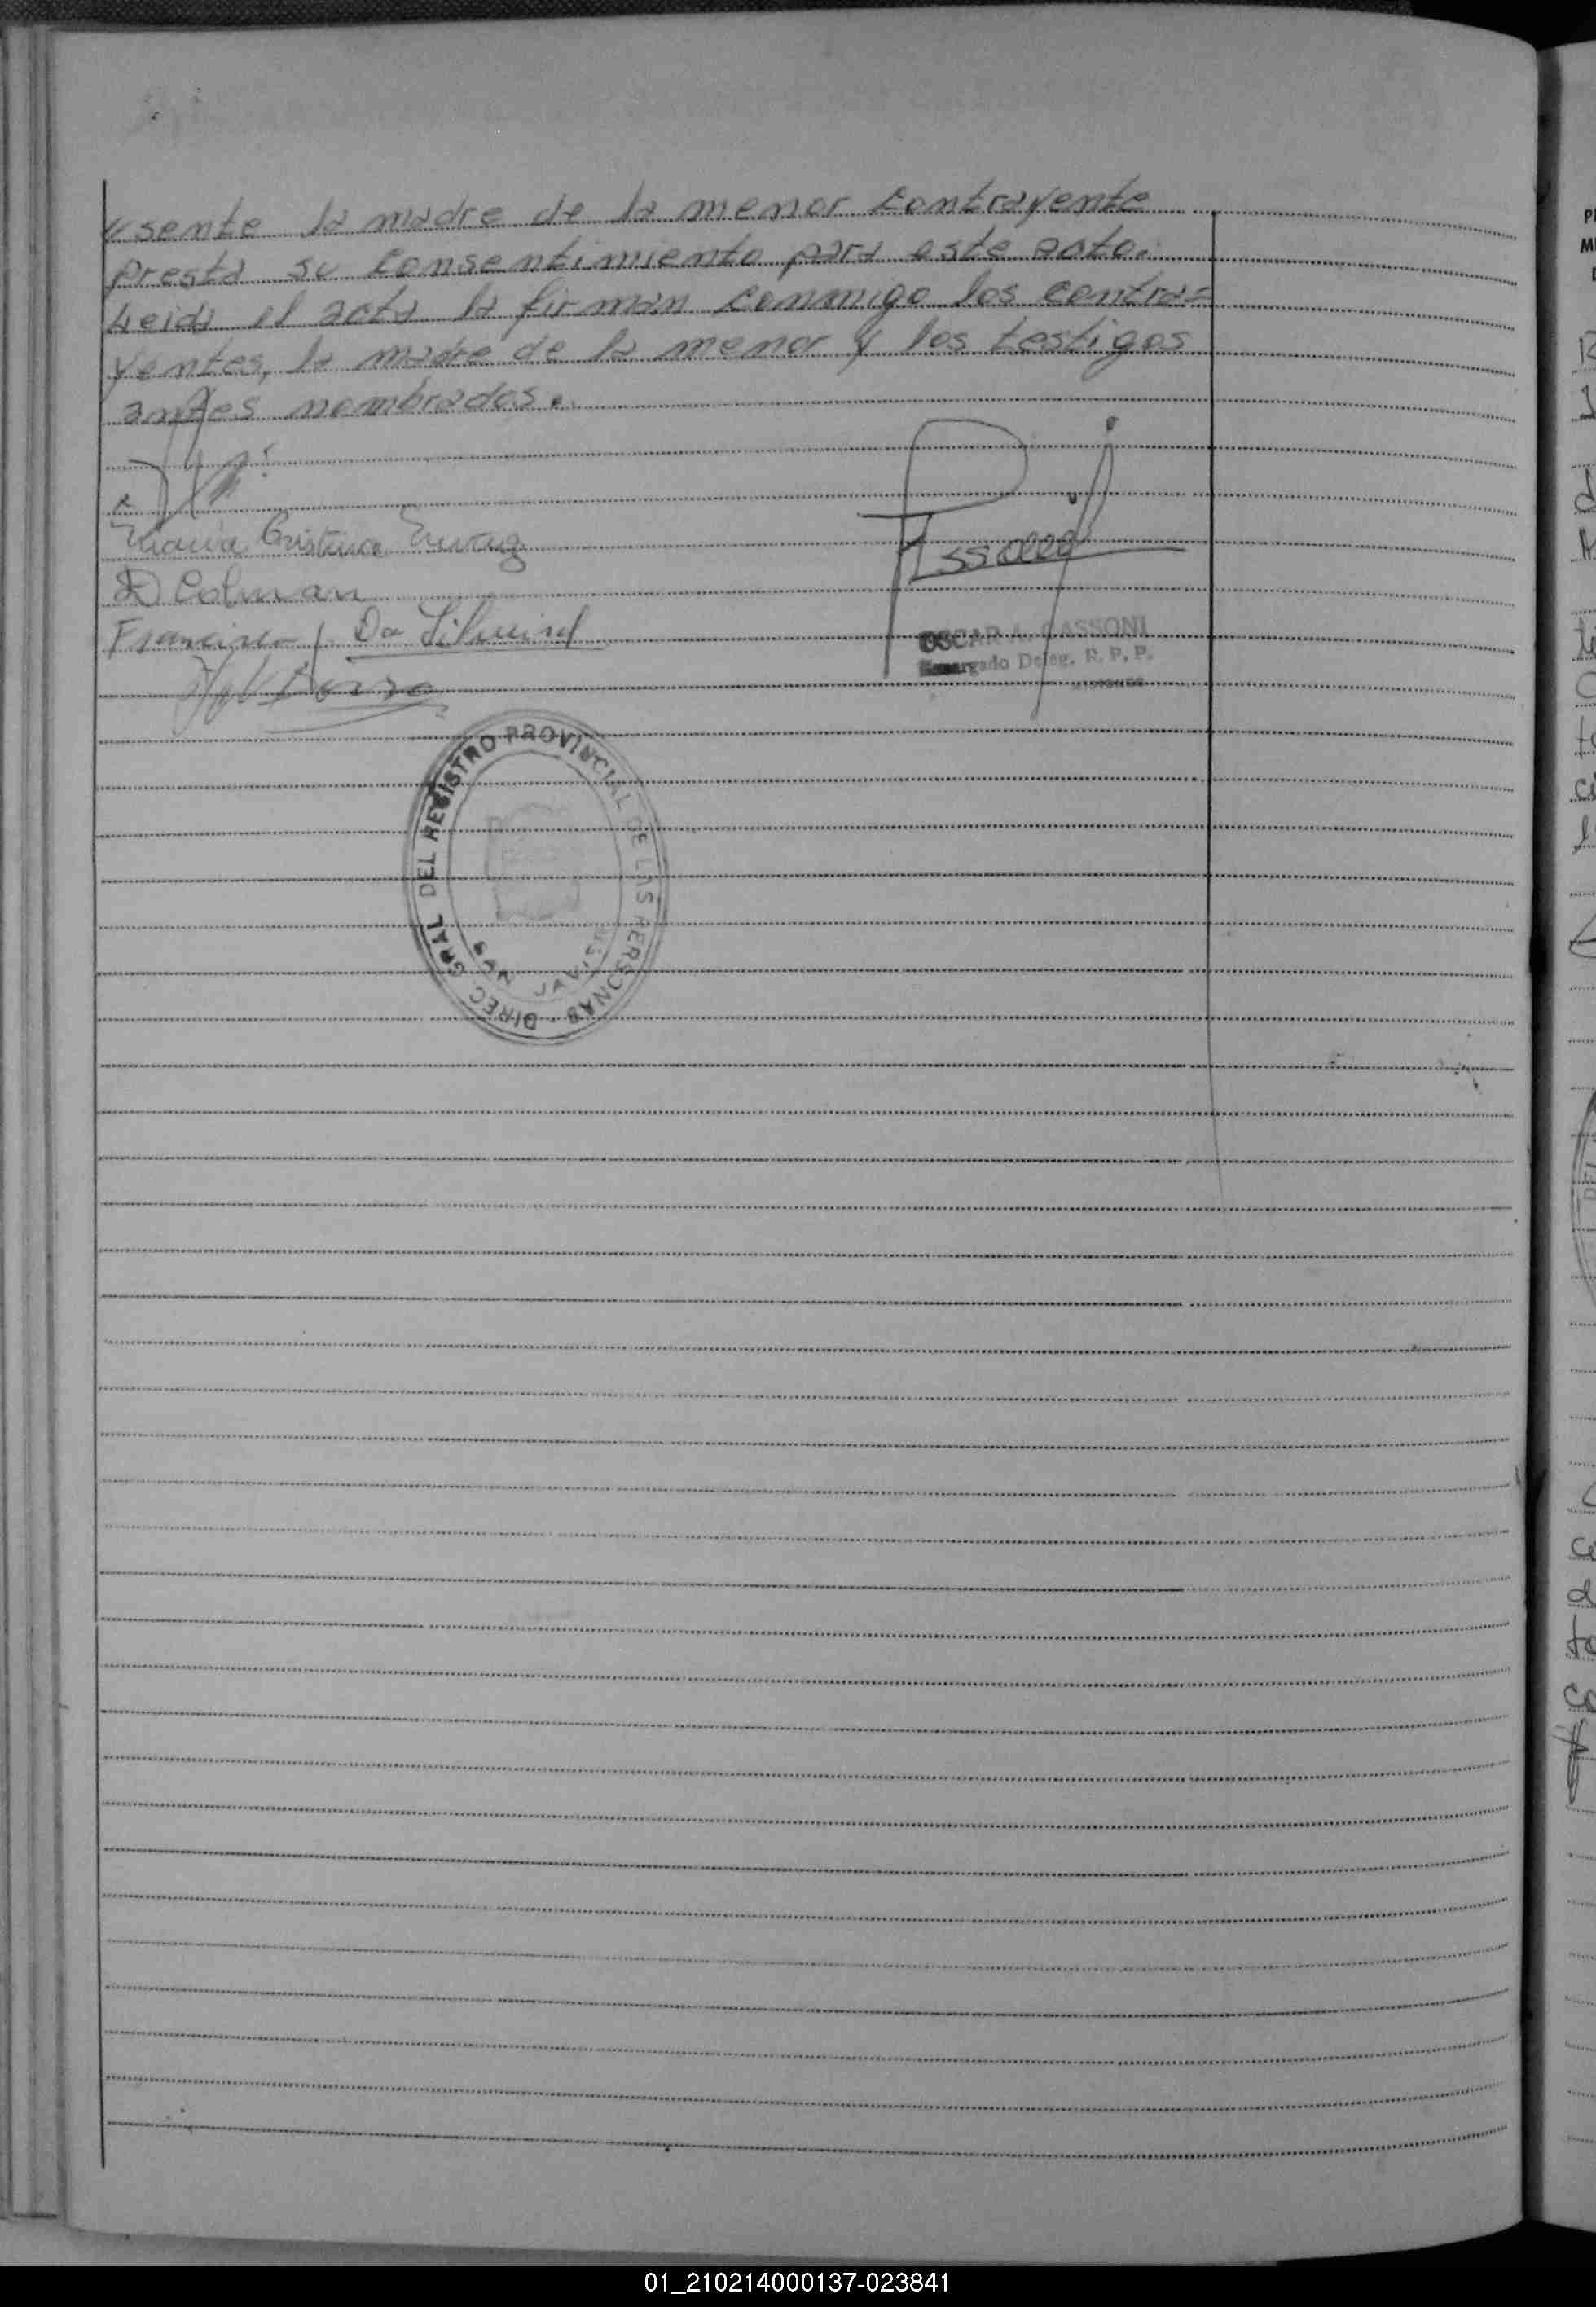 sente la madre de la menor contrayente
presta su consentimiento para este acto.
Leida el acta la firman conmigo los contra=
yentes, la madre de la menor y los testigos
antes nombrados.
Maria Cristina
D Colman
Francisco Da
OSCAR A. CASSONI
Encargado Deleg. R. P. P.
DIREC. GRAL DEL REGISTRO PROVINCIAL DE LAS PERSONAS
SAN JAVIER
01_210214000137-023841